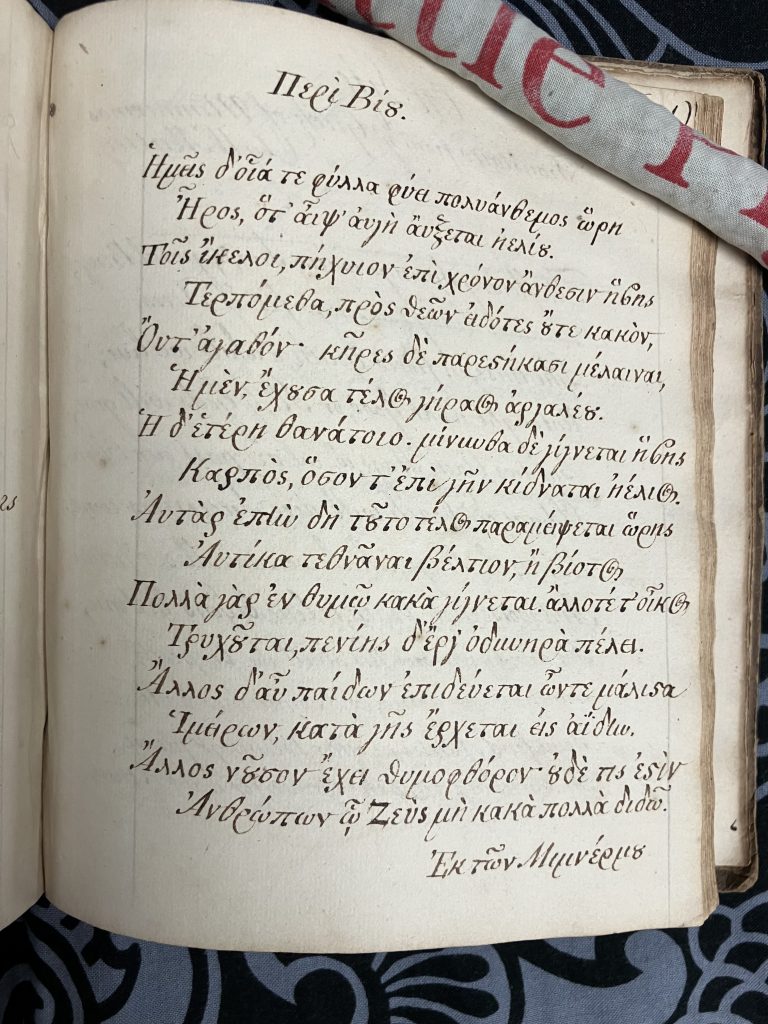 Περὶ Βίȣ.
Ἡμεῖς δ' οἷά τε φύλλα φύει πολυάνθεμος ὥρη
Ἦρος, ὅτ' αἶψ' ἀυγὴ ἄυξεται ἠελίȣ.
Τοῖς ἴκελοι, πήχυιον ἐπὶ χρόνον ἄνθεσιν ἥβης
Τερπόμεθα, πρὸς θεῶν ἐιδότες ȣ̓τε κακὸν,
Ὄυτ' ἀγαθόν· κῆρες δὲ παρεϛήκασι μέλαιναι,
Ἡμὲν, ἔχȣσα τέλος γήραος ἀργαλέȣ.
Ἡ δ' ἑτέρη θανάτοιο. μίνυνθα δὲ γίγνεται ἥβης
Καρπὸς, ὅσον τ' ἐπὶ γῆν κίδναται ἠέλιος.
Ἀυτὰρ ἐπὴν δὴ τȣ͂το τέλος παραμέιψεται ὥρης
Ἀυτίκα τεθνᾶναι βέλτιον, ἢ βίοτος
Πολλὰ γὰρ ἐν θυμῷ κακὰ γίγνεται. ἄλλοτέ τ' οἶκος
Τρυχȣ͂ται, πενίης δ' ἔργ' ὀδυνηρὰ πέλει.
Ἄλλος δ' αὖ παίδων ἐπιδεύεται ὧντε μάλιϛα
Ἱμείρων, κατὰ γῆς ἔρχεται εἰς ἀΐδην.
Ἄλλος νȣ͂σον ἔχει θυμοφθόρον· ȣ̓δὲ τις ἐϛὶν
Ἀνθρώπων ᾧ Ζεὺς μὴ κακὰ πολλὰ διδῶ.
Ἐκ τῶν Μιμνέρμȣ